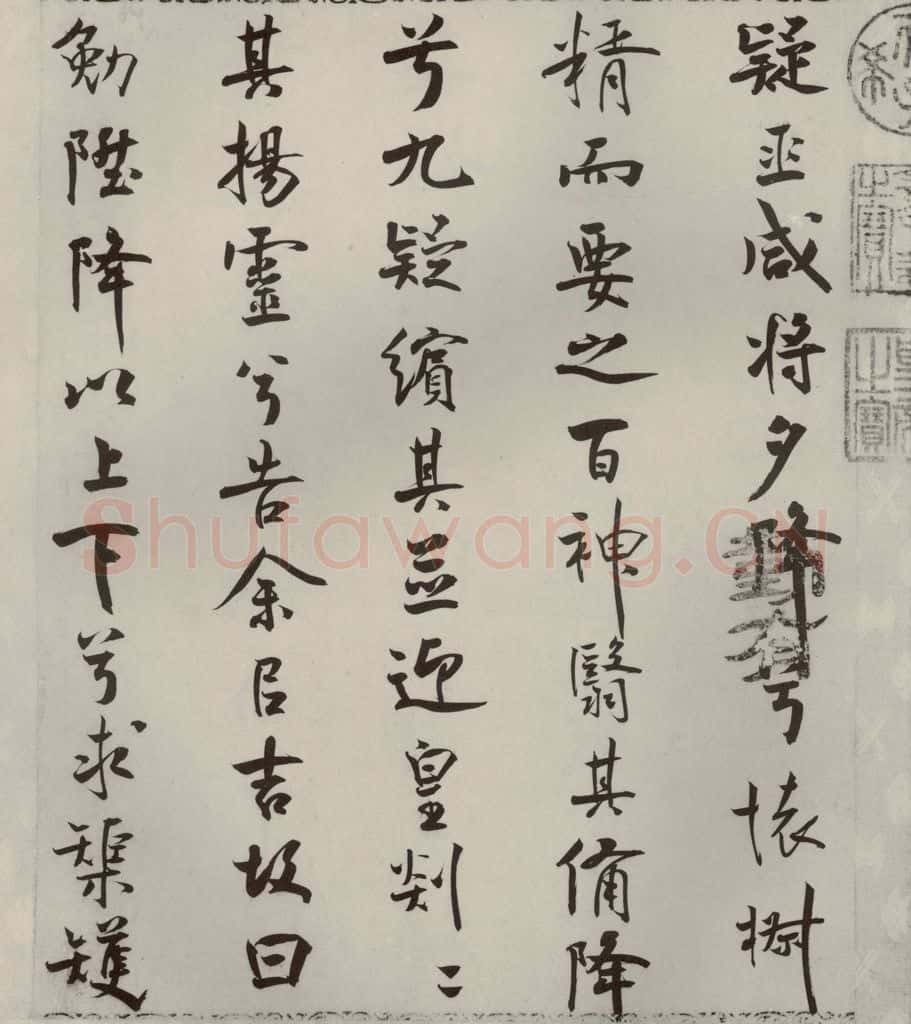 疑巫咸將夕降兮懷椒
精而要之百神翳其備降
兮九疑繽其並迎皇剡二
其揚靈兮告余㠯吉故曰
勉陞降以上下兮求榘矱
之寶
之寶
Shufawang.CN